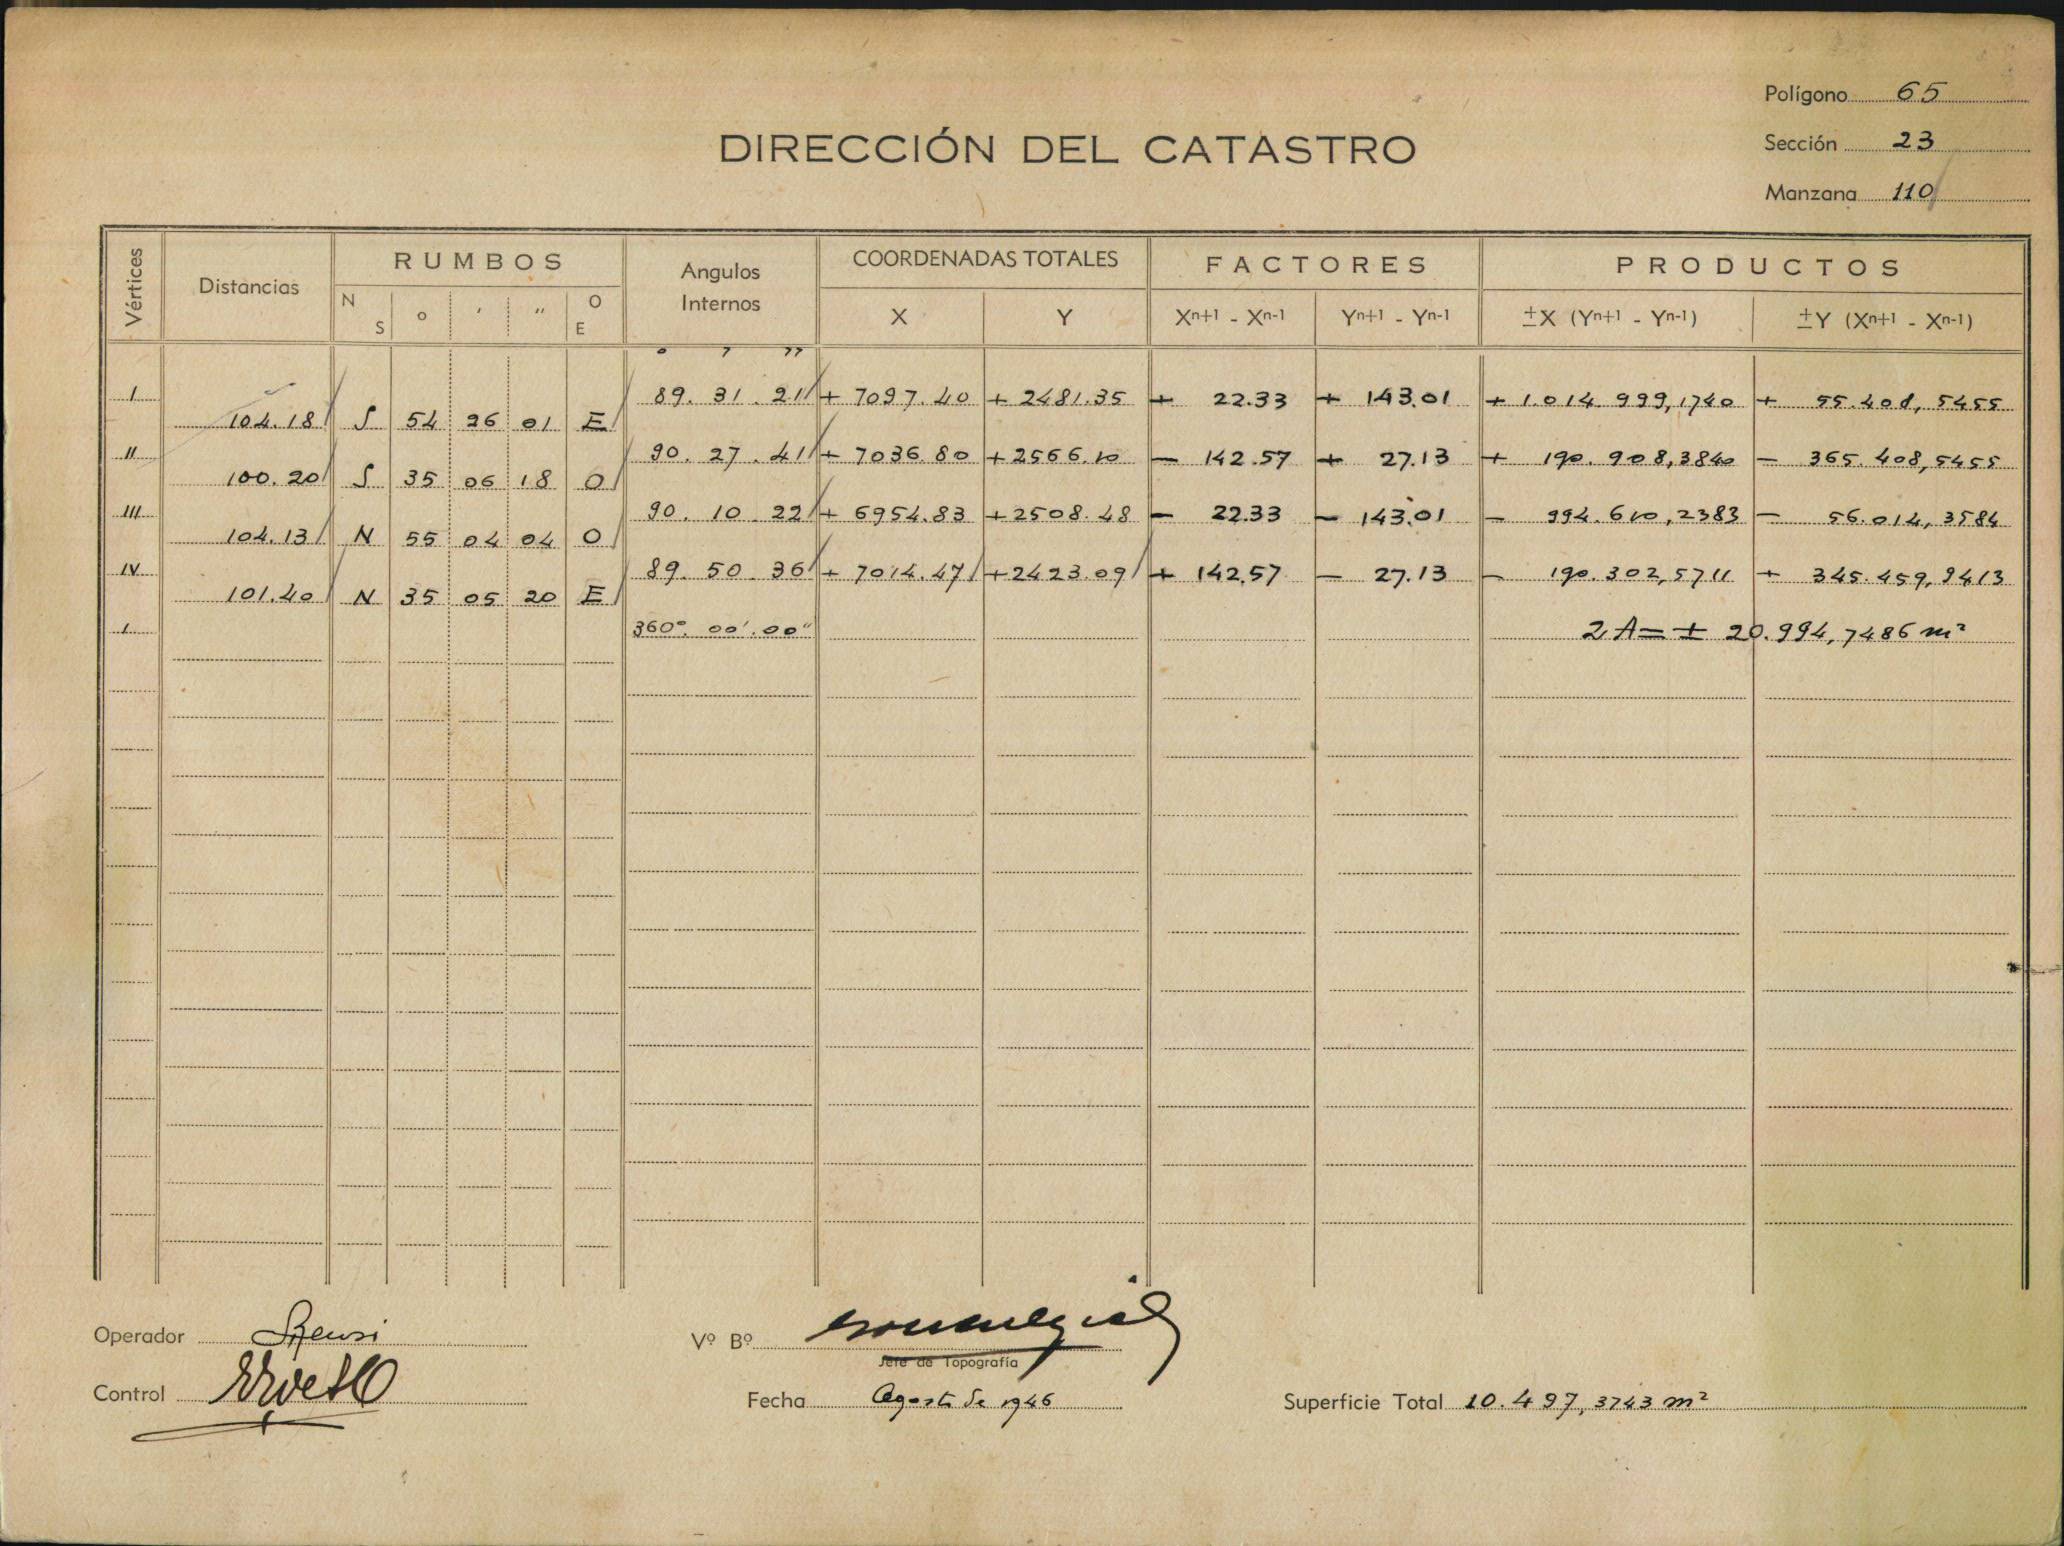 Polígono 65
Sección 23
Manzana 110
DIRECCIÓN DEL CATASTRO
Vértices Distancias RUMBOS Angulos Internos COORDENADAS TOTALES FACTORES PRODUCTOS
N S o ' " O E X Y Xn+1 - Xn-1 Yn+1 - Yn-1 ±X (Yn+1 - Yn-1) ±Y (Xn+1 - Xn-1)
° ' ''
I 89. 31. 21 + 7097.40 + 2481.35 + 22.33 + 143.01 + 1.014.999,1740 + 55.408,5455
104.18 S 54 26 01 E
II 90. 27. 41 + 7036.80 + 2566.10 - 142.57 + 27.13 + 190.908,3840 - 365.408,5455
100.20 S 35 06 18 O
III 90. 10. 22 + 6954.83 + 2508.48 - 22.33 - 143.01 - 994.610,2383 - 56.014,3584
104.13 N 55 04 04 O
IV 89. 50. 36 + 7014.47 + 2423.09 + 142.57 - 27.13 - 190.302,5711 + 345.459,9413
101.40 N 35 05 20 E
I 360°. 00'. 00" 2A = ± 20.994,7486 m²
Operador
Vº Bº
Jefe de Topografía
Control
Fecha Agosto de 1946
Superficie Total 10.497,3743 m²